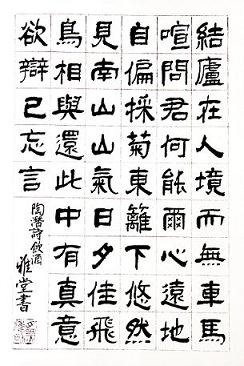 結廬在人境而無車馬
喧問君何能爾心遠地
自偏採菊東籬下悠然
見南山山氣日夕佳飛
鳥相與還此中有真意
欲辯已忘言
陶潛詩飲酒
雅堂書